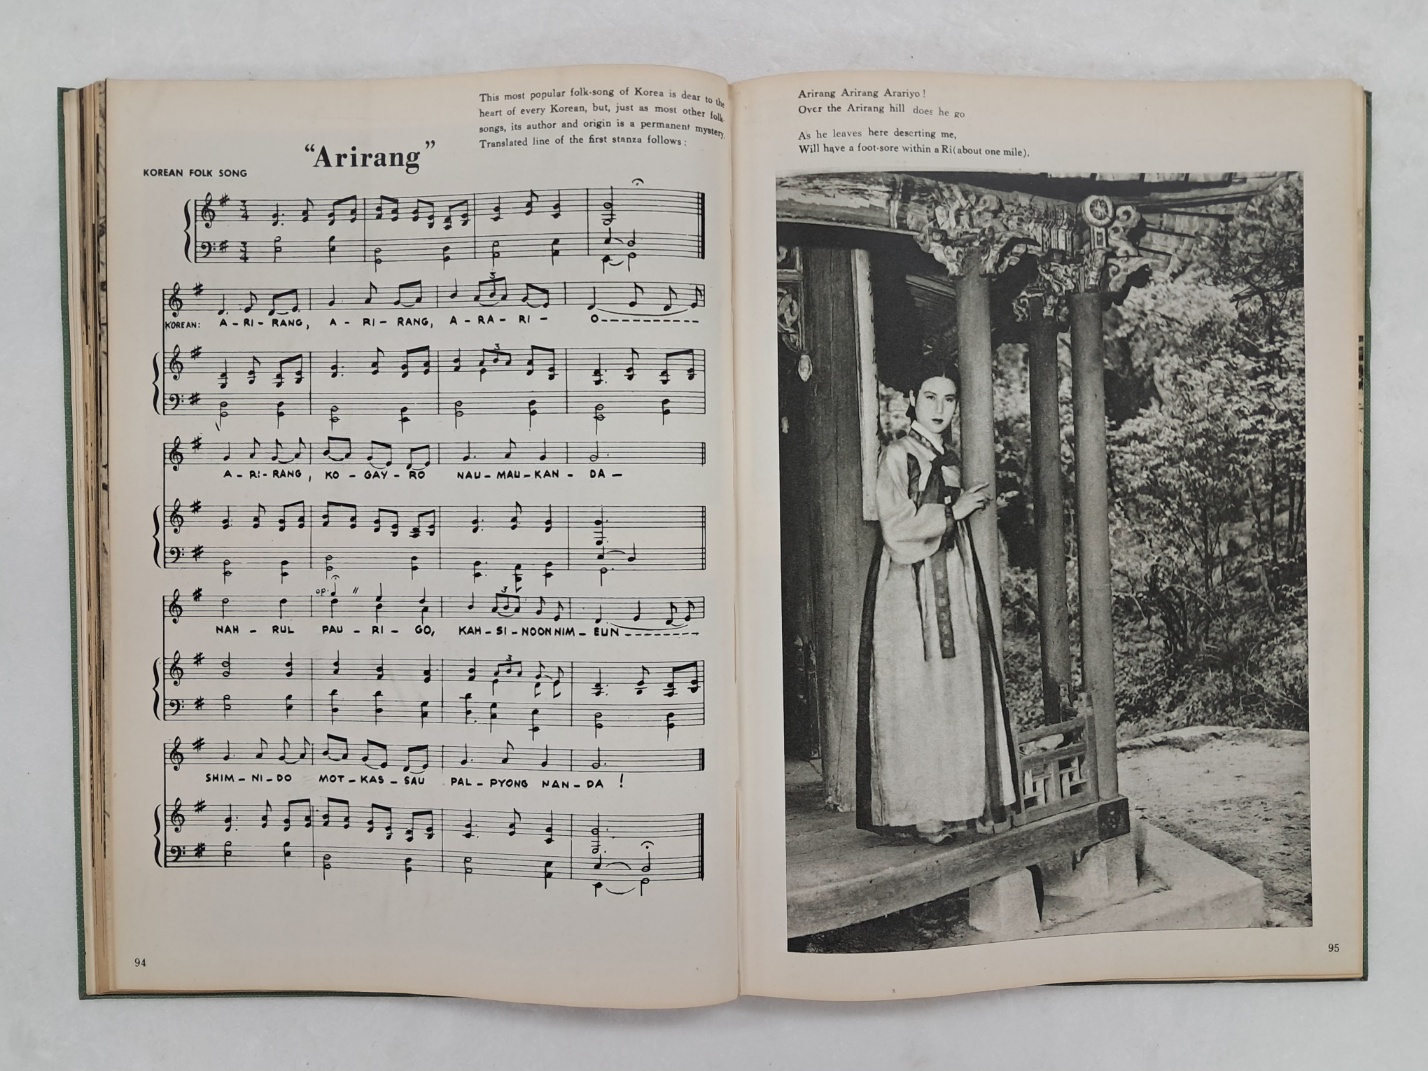 This most popular folk-song of Korea is dear to the
heart of every Korean, but, just as most other folk-
songs, its author and origin is a permanent mystery.
Translated line of the first stanza follows :
"Arirang"
KOREAN FOLK SONG
3
KOREAN: A-RI-RANG, A-RI-RANG, A-RA-RI- O---------
3
A-RI-RANG, KO-GAY-RO NAU-MAU-KAN-DA-
op. "
3
NAH-RUL PAU-RI-GO, KAH-SI-NOONNIM-EUN---------
3
SHIM-NI-DO MOT-KAS-SAU PAL-PYONG NAN-DA !
94
Arirang Arirang Arariyo !
Over the Arirang hill does he go
As he leaves here deserting me,
Will have a foot-sore within a Ri(about one mile).
95